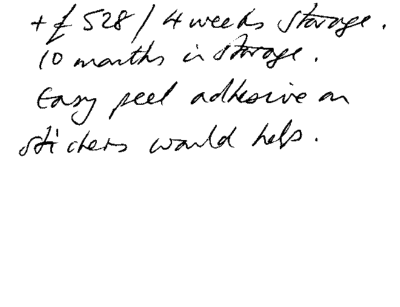 + £528 / 4 weeks storage.
10 months in storage.
Easy peel adhesive on
stickers would help.